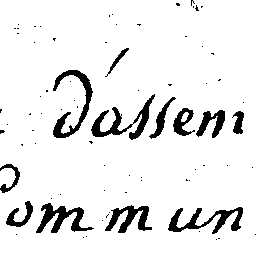 d'assem
Commun